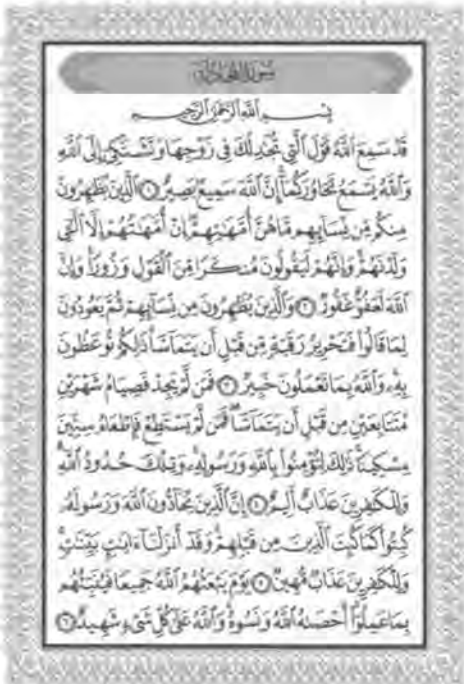 سُورَةُ المُجَادلَةِ
بِسْمِ ٱللَّهِ ٱلرَّحْمَٰنِ ٱلرَّحِيمِ
قَدْ سَمِعَ ٱللَّهُ قَوْلَ ٱلَّتِي تُجَٰدِلُكَ فِي زَوْجِهَا وَتَشْتَكِيٓ إِلَى ٱللَّهِ
وَٱللَّهُ يَسْمَعُ تَحَاوُرَكُمَآ إِنَّ ٱللَّهَ سَمِيعٌۢ بَصِيرٌ ١ ٱلَّذِينَ يُظَٰهِرُونَ
مِنكُم مِّن نِّسَآئِهِم مَّا هُنَّ أُمَّهَٰتِهِمْ إِنْ أُمَّهَٰتُهُمْ إِلَّا ٱلَّٰٓـِٔي
وَلَدْنَهُمْ وَإِنَّهُمْ لَيَقُولُونَ مُنكَرًا مِّنَ ٱلْقَوْلِ وَزُورًا وَإِنَّ
ٱللَّهَ لَعَفُوٌّ غَفُورٌ ٢ وَٱلَّذِينَ يُظَٰهِرُونَ مِن نِّسَآئِهِمْ ثُمَّ يَعُودُونَ
لِمَا قَالُوا۟ فَتَحْرِيرُ رَقَبَةٍ مِّن قَبْلِ أَن يَتَمَآسَّا ذَٰلِكُمْ تُوعَظُونَ
بِهِۦ وَٱللَّهُ بِمَا تَعْمَلُونَ خَبِيرٌ ٣ فَمَن لَّمْ يَجِدْ فَصِيَامُ شَهْرَيْنِ
مُتَتَابِعَيْنِ مِن قَبْلِ أَن يَتَمَآسَّا فَمَن لَّمْ يَسْتَطِعْ فَإِطْعَامُ سِتِّينَ
مِسْكِينًا ذَٰلِكَ لِتُؤْمِنُوا۟ بِٱللَّهِ وَرَسُولِهِۦ وَتِلْكَ حُدُودُ ٱللَّهِ
وَلِلْكَٰفِرِينَ عَذَابٌ أَلِيمٌ ٤ إِنَّ ٱلَّذِينَ يُحَآدُّونَ ٱللَّهَ وَرَسُولَهُۥ
كُبِتُوا۟ كَمَا كُبِتَ ٱلَّذِينَ مِن قَبْلِهِمْ وَقَدْ أَنزَلْنَآ ءَايَٰتٍۭ بَيِّنَٰتٍ
وَلِلْكَٰفِرِينَ عَذَابٌ مُّهِينٌ ٥ يَوْمَ يَبْعَثُهُمُ ٱللَّهُ جَمِيعًا فَيُنَبِّئُهُم
بِمَا عَمِلُوٓا۟ أَحْصَىٰهُ ٱللَّهُ وَنَسُوهُ وَٱللَّهُ عَلَىٰ كُلِّ شَيْءٍ شَهِيدٌ ٦